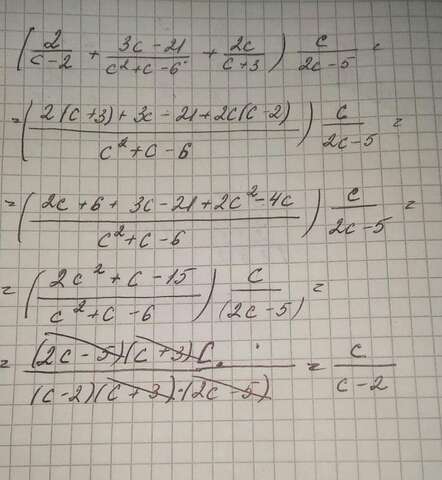 (2/(c-2) + (3c-21)/(c²+c-6) + 2c/(c+3)) c/(2c-5) =
= ((2(c+3)+3c-21+2c(c-2))/(c²+c-6)) c/(2c-5) =
= ((2c+6+3c-21+2c²-4c)/(c²+c-6)) c/(2c-5) =
= ((2c²+c-15)/(c²+c-6)) c/(2c-5) =
= ((2c-5)(c+3)c)/((c-2)(c+3)·(2c-5)) = c/(c-2)